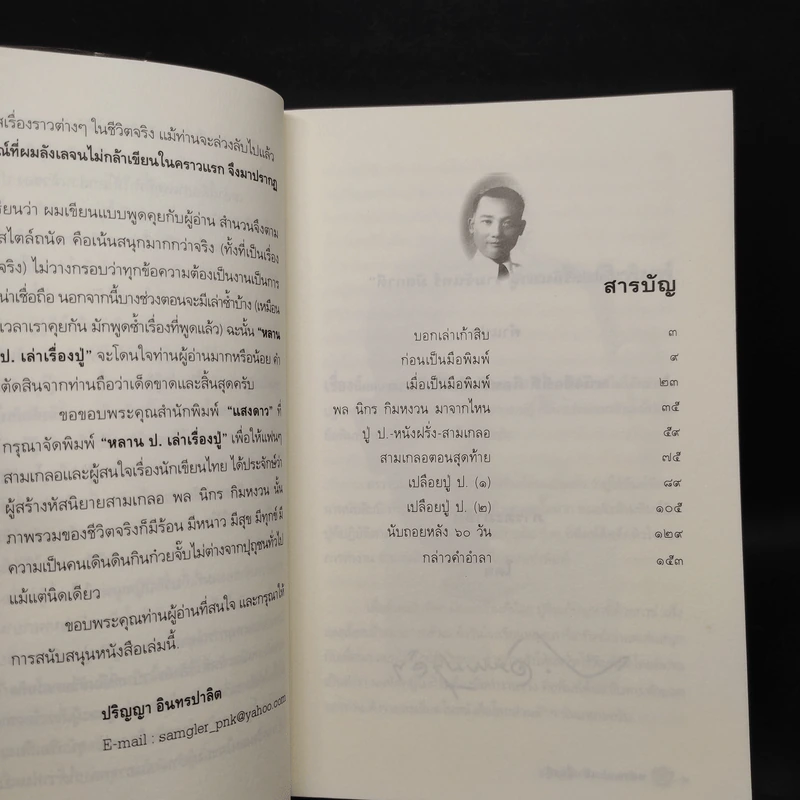 สเรื่องราวต่างๆ ในชีวิตจริง แม้ท่านจะล่วงลับไปแล้ว
ณ์ที่ผมลังเลจนไม่กล้าเขียนในคราวแรก จึงมาปรากฏ
รียนว่า ผมเขียนแบบพูดคุยกับผู้อ่าน สำนวนจึงตาม
สไตล์ถนัด คือเน้นสนุกมากกว่าจริง (ทั้งที่เป็นเรื่อง
จริง) ไม่วางกรอบว่าทุกข้อความต้องเป็นงานเป็นการ
น่าเชื่อถือ นอกจากนี้บางช่วงตอนจะมีเล่าซ้ำบ้าง (เหมือน
เวลาเราคุยกัน มักพูดซ้ำเรื่องที่พูดแล้ว) ฉะนั้น "หลาน
ป. เล่าเรื่องปู่" จะโดนใจท่านผู้อ่านมากหรือน้อย คำ
ตัดสินจากท่านถือว่าเด็ดขาดและสิ้นสุดครับ
ขอขอบพระคุณสำนักพิมพ์ "แสงดาว" ที่
กรุณาจัดพิมพ์ "หลาน ป. เล่าเรื่องปู่" เพื่อให้แฟนๆ
สามเกลอและผู้สนใจเรื่องนักเขียนไทย ได้ประจักษ์ว่า
ผู้สร้างหัสนิยายสามเกลอ พล นิกร กิมหงวน นั้น
ภาพรวมของชีวิตจริงก็มีร้อน มีหนาว มีสุข มีทุกข์ มี
ความเป็นคนเดินดินกินก๋วยจั๊บไม่ต่างจากปุถุชนทั่วไป
แม้แต่นิดเดียว
ขอบพระคุณท่านผู้อ่านที่สนใจ และกรุณาให้
การสนับสนุนหนังสือเล่มนี้.
ปริญญา อินทรปาลิต
E-mail : samgler_pnk@yahoo.com
สารบัญ
บอกเล่าเก้าสิบ ๓
ก่อนเป็นมือพิมพ์ ๙
เมื่อเป็นมือพิมพ์ ๒๓
พล นิกร กิมหงวน มาจากไหน ๓๕
ปู่ ป.-หนังฝรั่ง-สามเกลอ ๕๙
สามเกลอตอนสุดท้าย ๗๕
เปลือยปู่ ป. (๑) ๘๙
เปลือยปู่ ป. (๒) ๑๐๕
นับถอยหลัง ๖๐ วัน ๑๒๙
กล่าวคำอำลา ๑๕๓